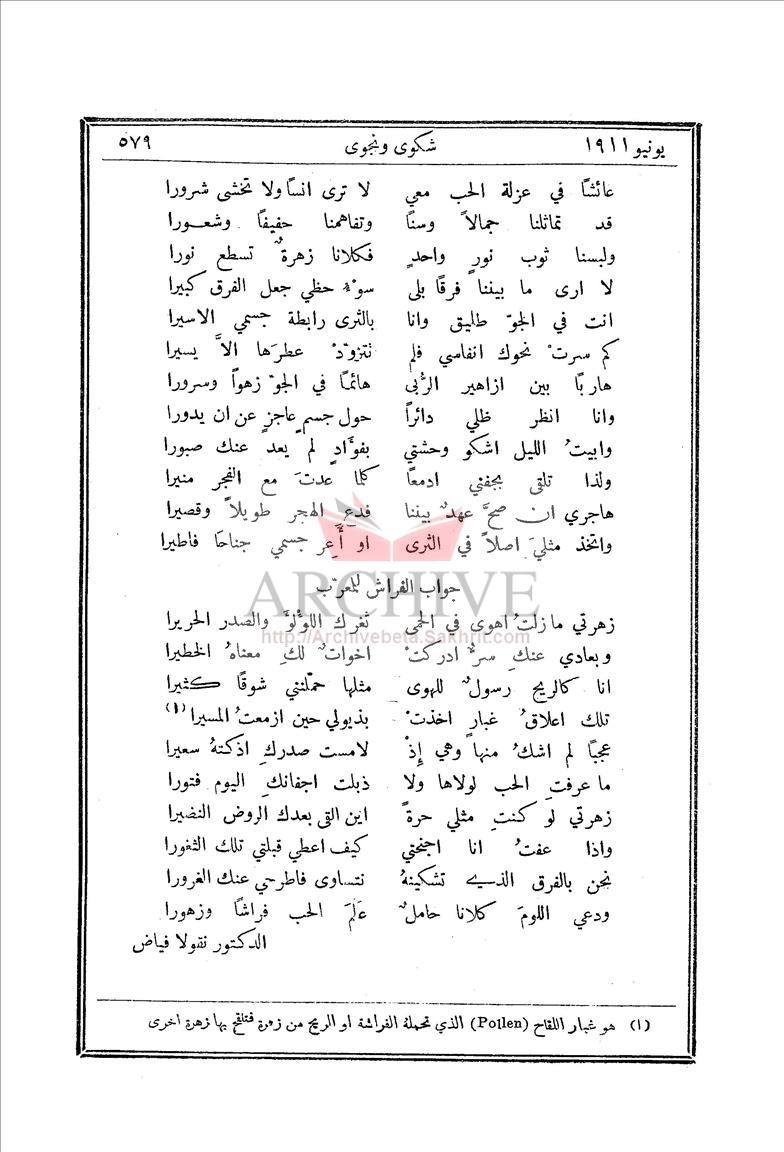 يونيو ١٩١١ شكوى ونجوى ٥٧٩
عائشاً في عزلة الحب معي لا ترى انساً ولا تخشى شرورا
قد تماثلنا جمالاً وسناً وتفاهمنا حفيفاً وشعورا
ولبسنا ثوب نورٍ واحدٍ فكلانا زهرةٌ تسطع نورا
لا ارى ما بيننا فرقاً بلى سوءُ حظي جعل الفرق كبيرا
انت في الجوّ طليق وانا بالثرى رابطة جسمي الاسيرا
كم سرتْ نحوك انفاسي فلم نتزوّدْ عطرَها الاَّ يسيرا
هارباً بين ازاهير الرُّبى هائماً في الجوّ زهواً وسرورا
وانا انظر ظلي دائراً حول جسمٍ عاجزٍ عن ان يدورا
وابيتُ الليل اشكو وحشتي بفوَّادٍ لم يعد عنك صبورا
ولذا تلقى بجفني ادمعاً كلما عدتَ مع الفجر منيرا
هاجري ان صحَّ عهدٌ بيننا فدعِ الهجر طويلاً وقصيرا
واتخذ مثليَ اصلاً في الثرى او أَعِر جسمي جناحاً فاطيرا
جواب الفراش للمعرّب
زهرتي ما زلتُ اهوى في الحمى ثغرك اللوُّلوَّ والصدر الحريرا
وبعادي عنكِ سرٌّ ادركتْ اخواتٌ لكِ معناهُ الخطيرا
انا كالريح رسولٌ للهوى مثلها حمّلتني شوقاً كثيرا
تلك اعلاقُ غبارٍ اخذتْ بذيولي حين ازمعتُ المسيرا (١)
عجباً لم اشكُ منها وهي إِذْ لامست صدركِ اذكتهُ سعيرا
ما عرفتِ الحب لولاها ولا ذبلت اجفانكِ اليوم فتورا
زهرتي لو كنتِ مثلي حرةً اين التى بعدك الروض النضيرا
واذا عفتُ انا اجنحتي كيف اعطي قبلتي تلك الثغورا
نحن بالفرق الذي تشكينهُ نتساوى فاطرحي عنك الغرورا
ودعي اللومَ كلانا حاملٌ عَلَمَ الحب فراشاً وزهورا
الدكتور نقولا فياض
(١) هو غبار اللقاح (Pollen) الذي تحملهُ الفراشة او الريح من زهرة فتلقح بها زهرة اخرى
ARCHIVE
http://Archivebeta.Sakhrit.com